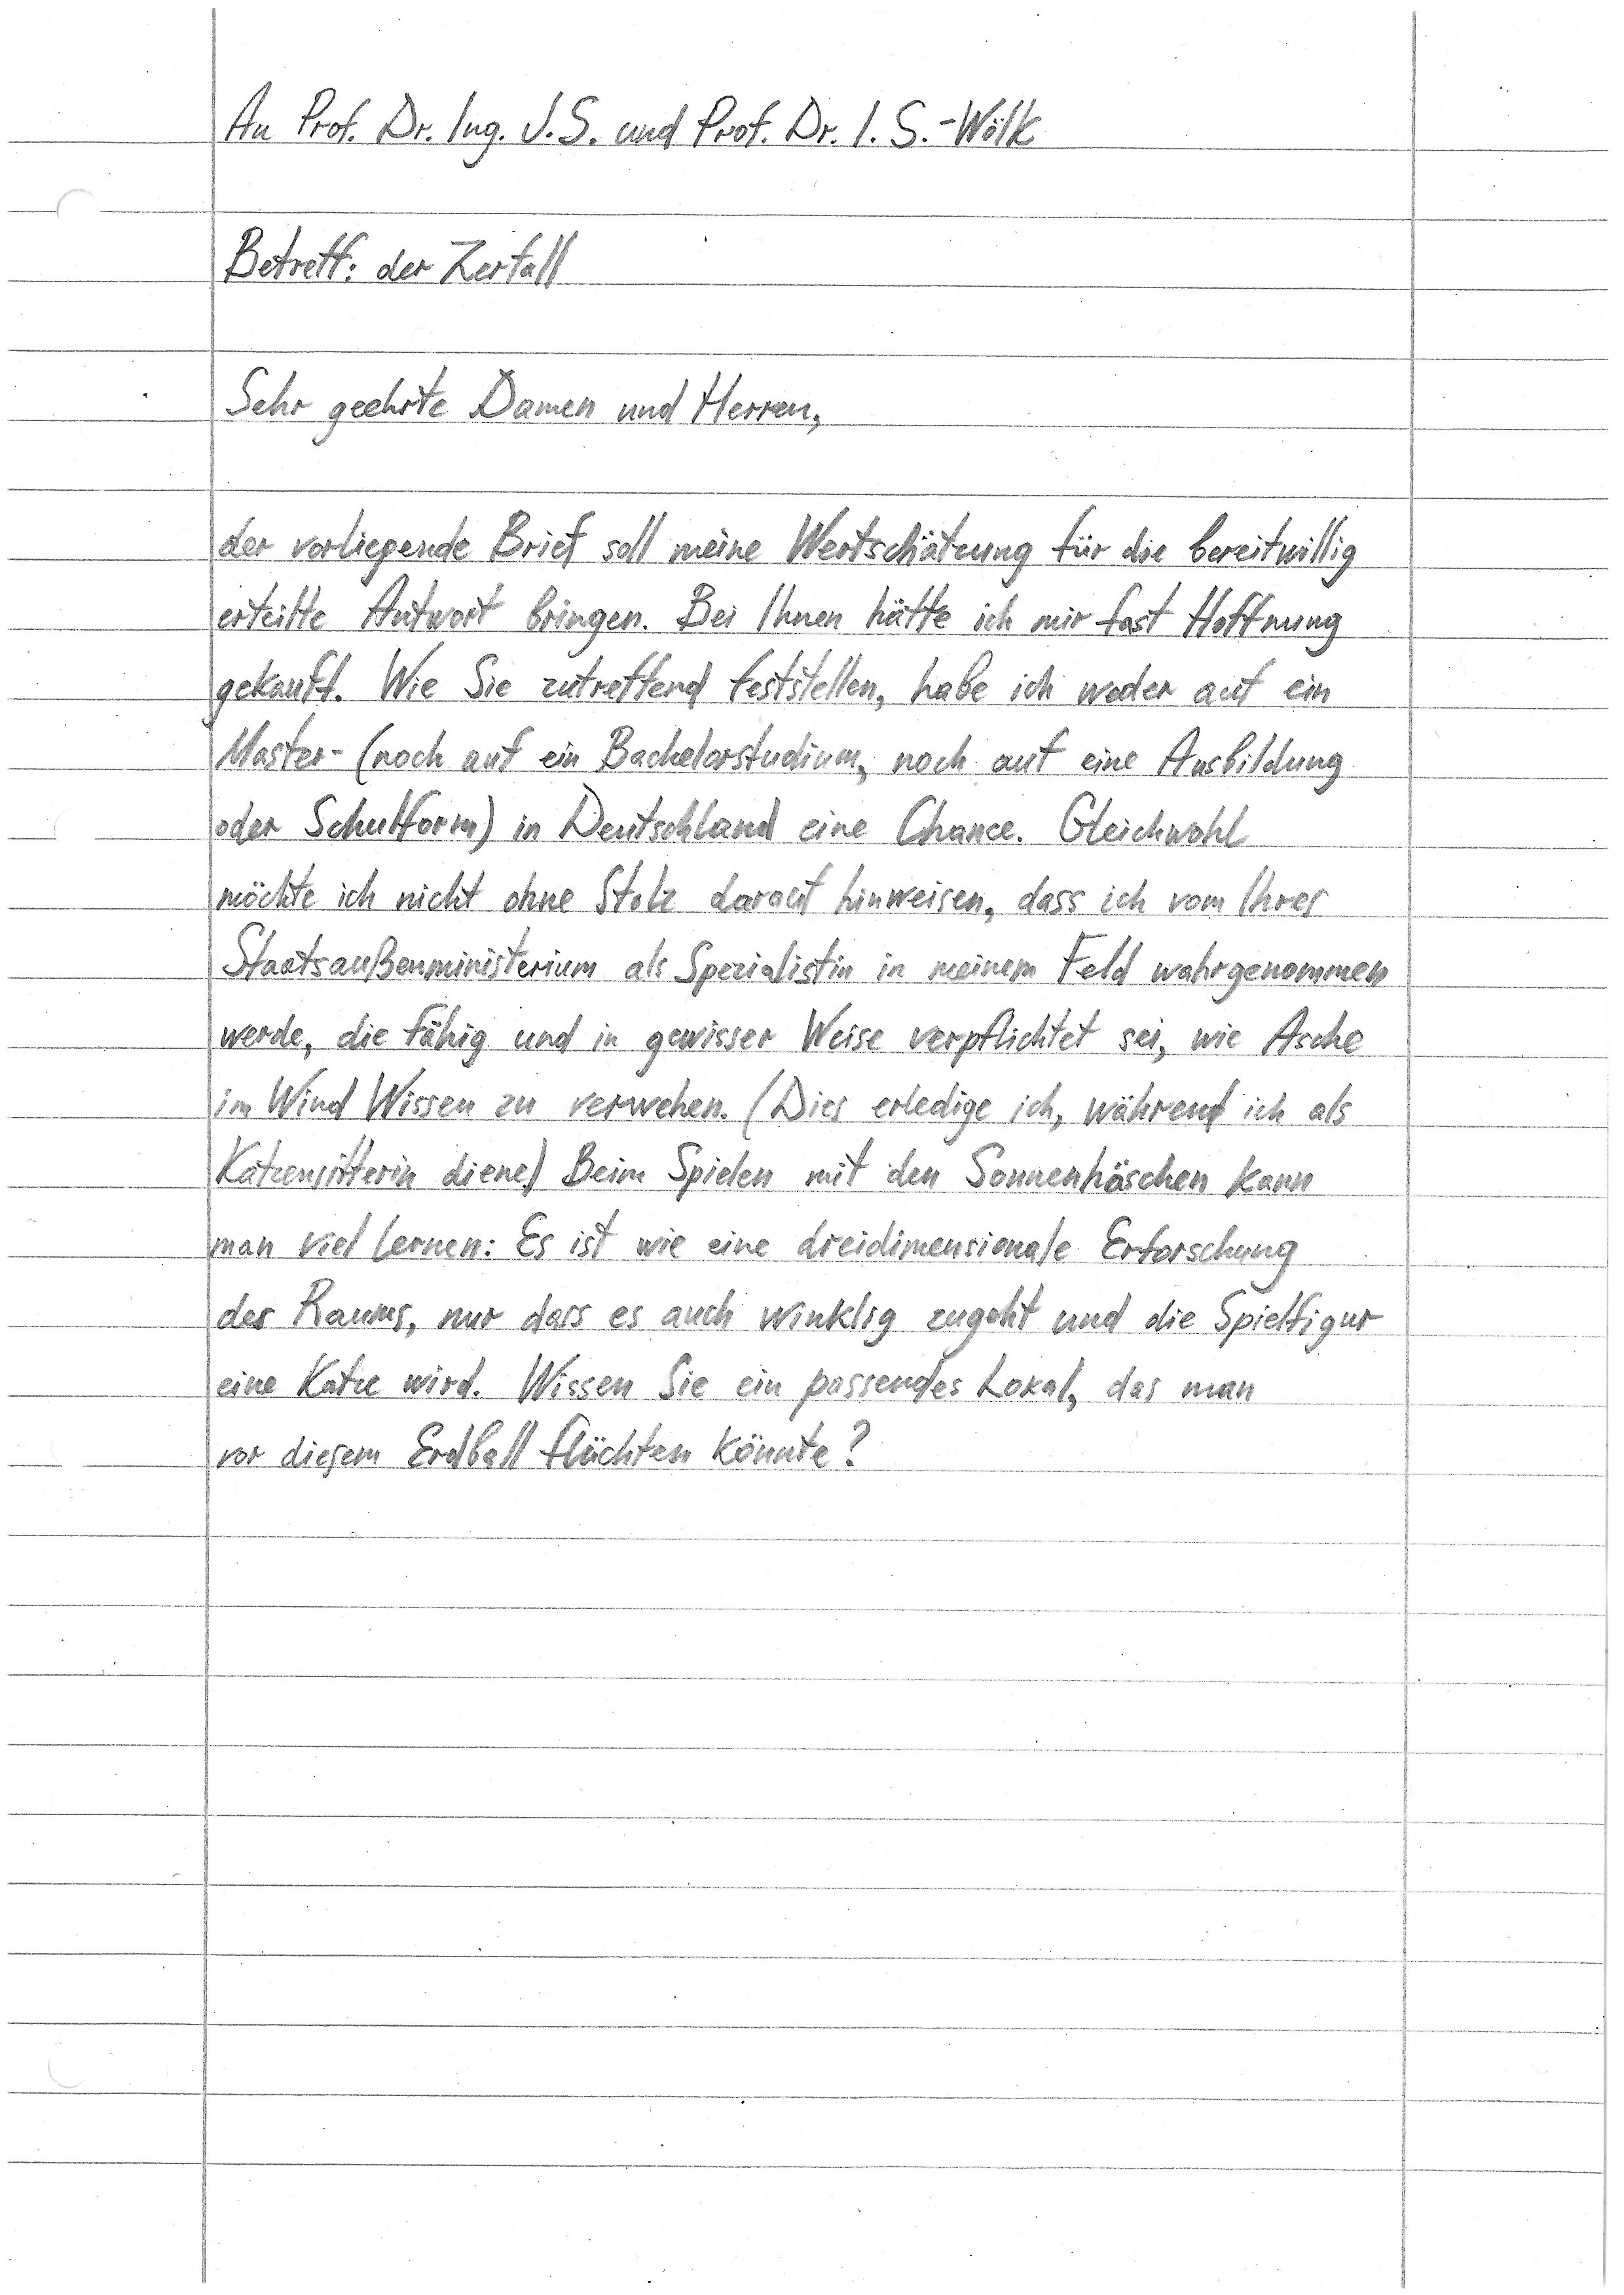 An Prof. Dr. Ing. J. S. und Prof. Dr. I. S.-Wölk
Betreff: der Zerfall
Sehr geehrte Damen und Herren,
der vorliegende Brief soll meine Wertschätzung für die bereitwillig
erteilte Antwort bringen. Bei Ihnen hätte ich mir fast Hoffnung
gekauft. Wie Sie zutreffend feststellen, habe ich weder auf ein
Master- (noch auf ein Bachelorstudium, noch auf eine Ausbildung
oder Schulform) in Deutschland eine Chance. Gleichwohl
möchte ich nicht ohne Stolz darauf hinweisen, dass ich vom Ihres
Staatsaußenministerium als Spezialistin in meinem Feld wahrgenommen
werde, die fähig und in gewisser Weise verpflichtet sei, wie Asche
im Wind Wissen zu verwehen. (Dies erledige ich, während ich als
Katzensitterin diene) Beim Spielen mit den Sonnenhäschen kann
man viel lernen: Es ist wie eine dreidimensionale Erforschung
des Raums, nur dass es auch winklig zugeht und die Spielfigur
eine Katze wird. Wissen Sie ein passendes Lokal, das man
vor diesem Erdball flüchten könnte?